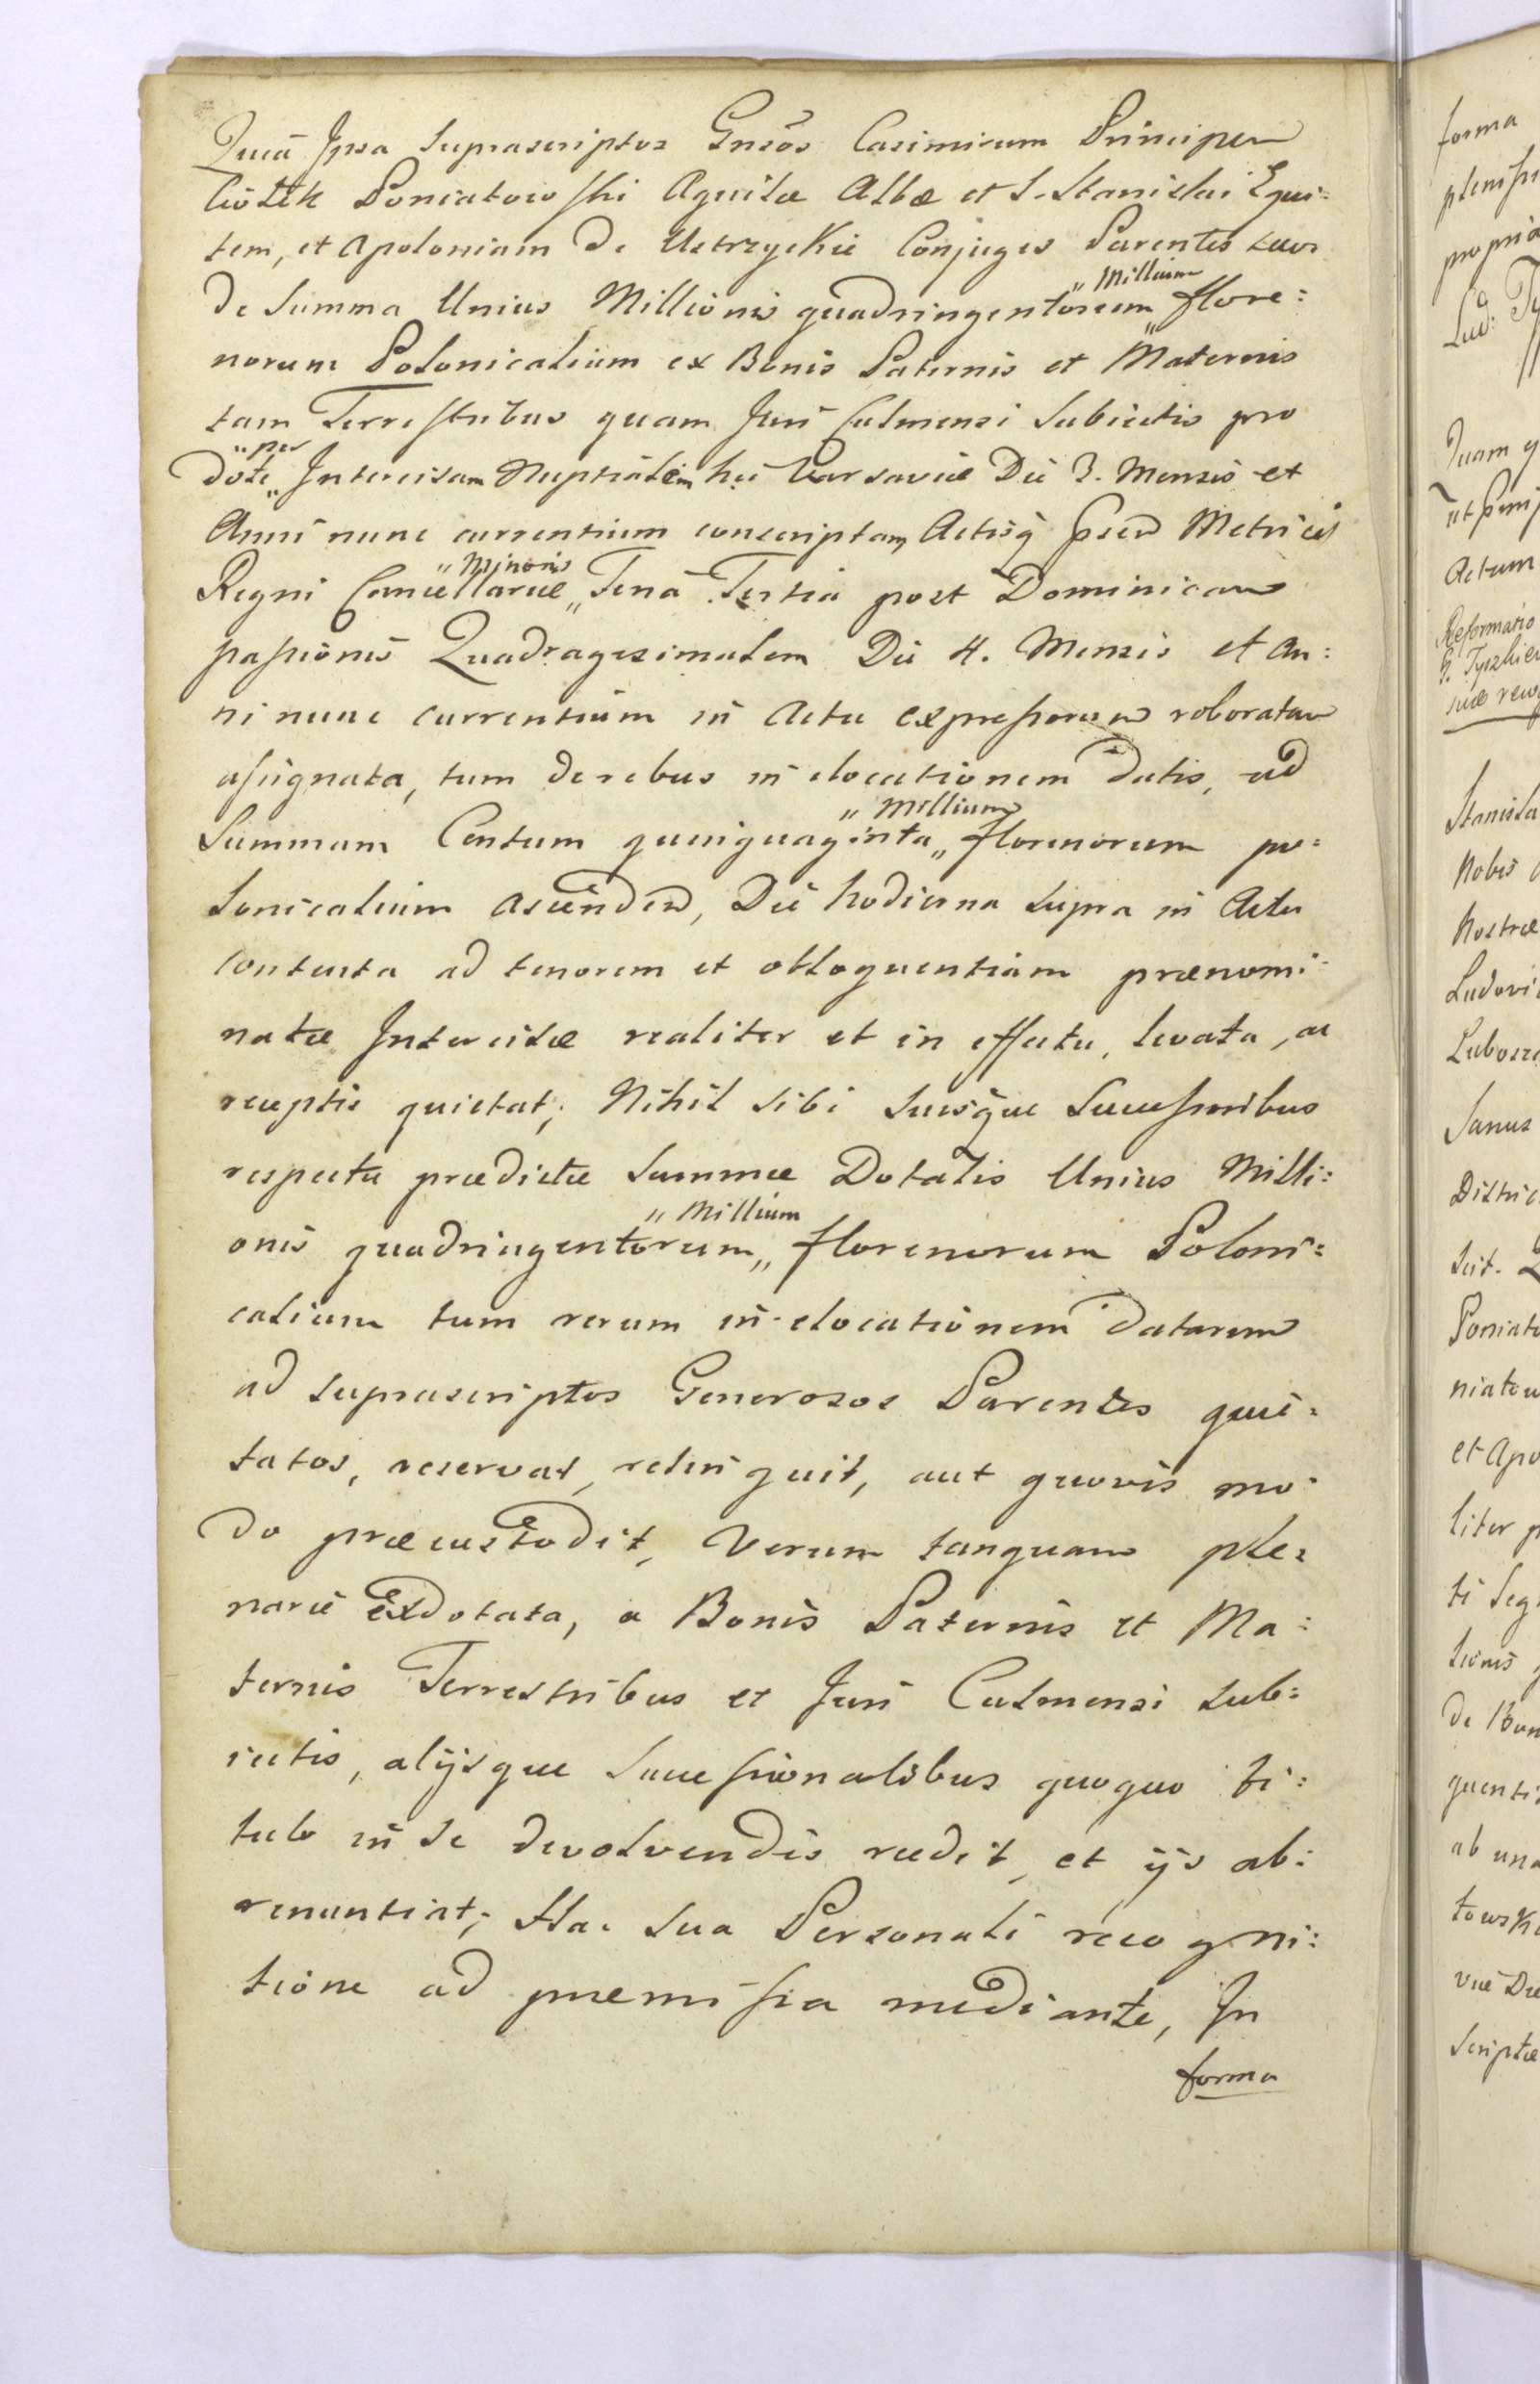 Quia Ipsa Suprascriptos Gnsos Casimirum Principem
Ciołek Poniatowski Aquilæ Albæ et S. Stanislai Equi:
tem, et Apoloniam de Ustrzyckie Conjuges Parentes suos
de Summa Unius Millionis quadringentorum „ Millium „ flore:
norum Polonicalium ex Bonis Paternis et Maternis
tam Terrestribus quam Juri Culmensi Subiectis pro
dote „ per „ Intercisam Nuptialem hic Varsaviæ Die 3. Mensis et
Anni nunc currentium conscriptam, Actisq
Regni Cancellariæ „ Minoris „ Tertia post Dominicam
passionis Quadragesimalem Die 4. Mensis et An:
ni nunc currentium in Actu expressorum roboratam
assignata, tum de rebus in elocationem datis, ad
Summam Centum quinquaginta „ Millium „ florenorum po:
lonicalium ascenden, Die hodierna supra in Actu
contenta ad tenorem et obloquentiam prænomi:
natæ Intercisæ realiter et in effectu, levata, ac
receptis quietat; Nihil sibi suisque Successoribus
respectu prædictæ Summæ Dotalis Unius Milli:
onis quadringentorum „ Millium „ florenorum Poloni:
calium tum rerum in elocationem datarum
ad suprascriptos Generosos Parentes quie:
tatos, reservat, relinquit, aut quovis mo:
do præcustodit, Verum tanquam ple:
narie exdotata, a Bonis Paternis et Ma:
ternis Terrestribus et Juri Culmensi sub:
iectis, alijsque Successionalibus quoquo ti:
tulo in se devolvendis recedit, et ijs ab:
renuntiat; Hac sua Personali recogni:
tione ad præmissa mediante, In
forma
forma
propria
Lud:
Quam
Actum
Reformatio
Stanisla
Nobis
Nostræ
Ludovi
Sanus
Distric
Poniato
niatow
et Apo
liter p
ti Seg
tionis
de Bon
quenti
ab una
towski
viæ Die
scriptæ